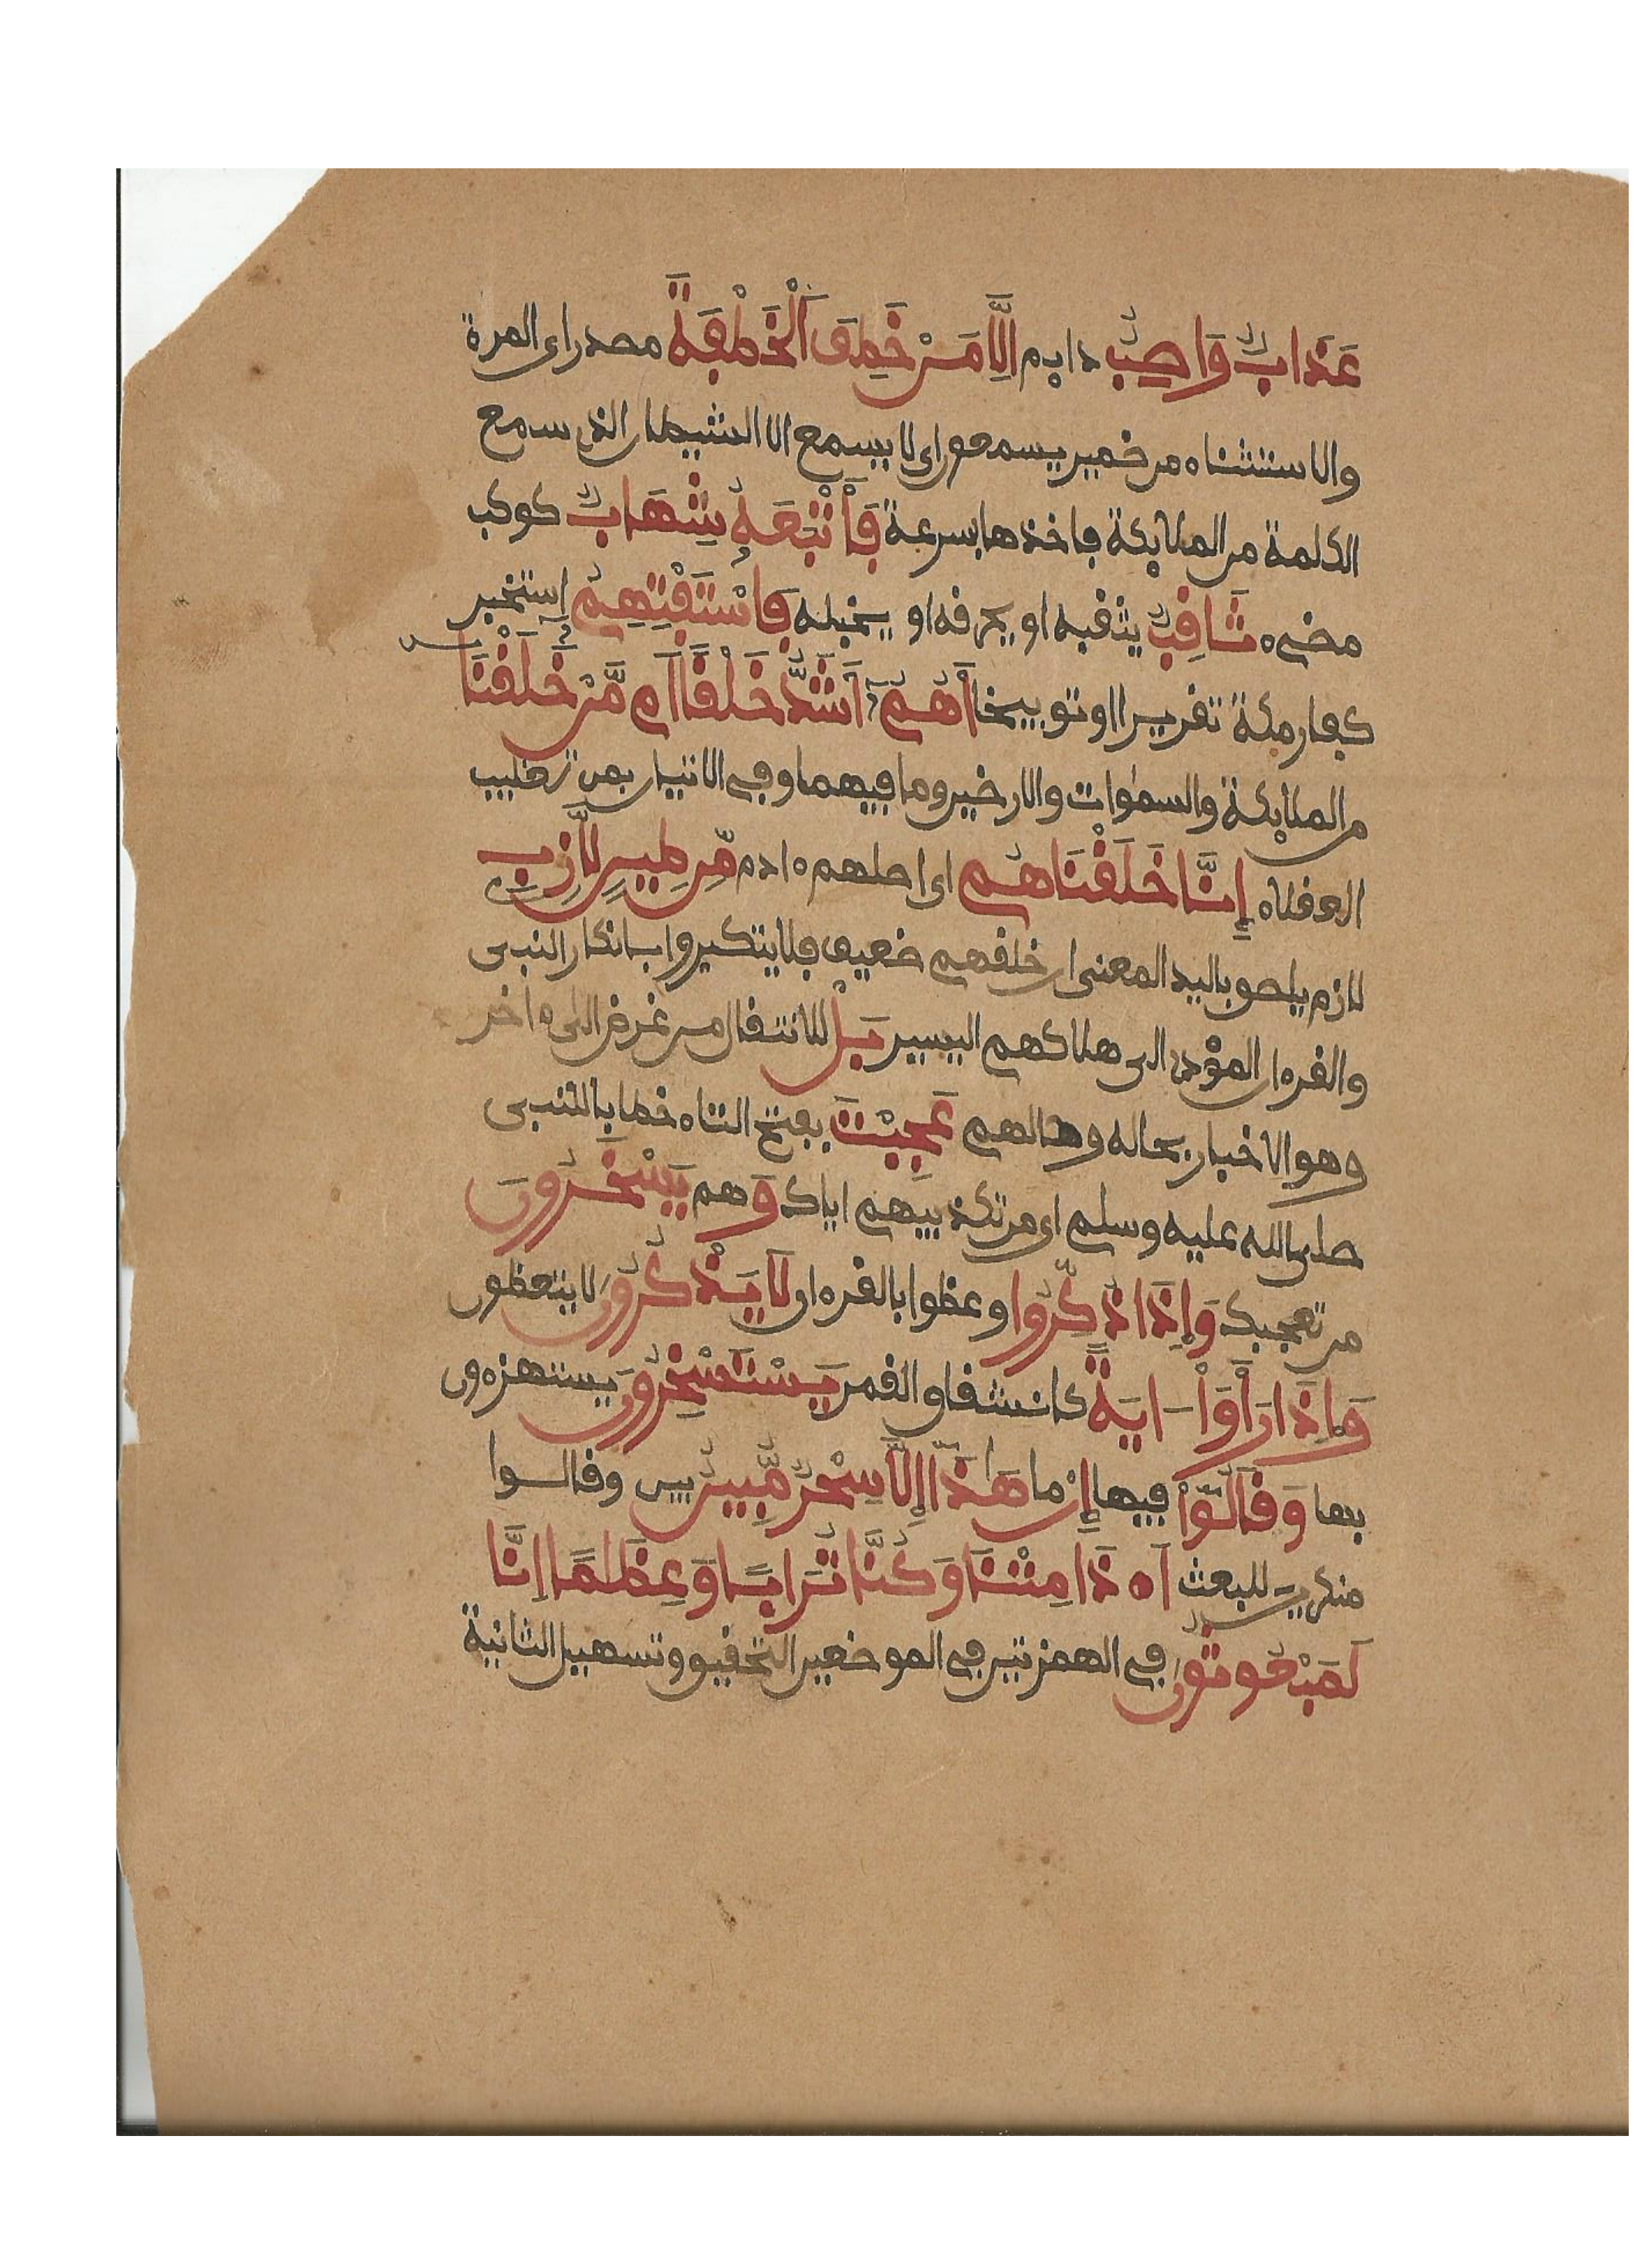 عَذَابٌ وَاصِبٌ دايم اِلَّا مَنْ خَطِفَ اَلْخَطْفَةَ مصدر اى المرة
والاستثناء من ضمير يسمعون اى لا يسمع الا الشيطان الذى سمع
الكلمة من الملايكة فاخذها بسرعة فَأَتْبَعَهُ شِهَابٌ كوكب
مضىء ثَاقِبٌ يثقبه او يحرقه او يخبله فَاسْتَفْتِهِمُ استخبر
كفار مكة تقريرا او توبيخا أَهُمُ أَشَدُّ خَلْقًا اَم مَّنْ خَلَقْنَا
من الملايكة والسموات والارضين وما فيهما وفى الاتيان بمن تغليب
العقلاء إِنَّا خَلَقْنَاهُم اى اصلهم ءادم مِّن طِينٍ لَّازِبٍ
لازم يلصق باليد المعنى ان خلقهم ضعيف فلا يتكبروا بانكار النبى
والقرءان المؤدى الى هلاكهم اليسير بَلْ للانتقال من غرض الى ءاخر
وهو الاخبار بحاله وحالهم عَجِبْتَ بفتح التاء خطابا للنبى
صلى الله عليه وسلم اى من تكذيبهم اياك وَ هم يَسْخَرُونَ
من تعجبك وَإِذَا ذُكِّرُوا وعظوا بالقرءان لَا يَذْكُرُونَ لا يتعظون
وَإِذَا رَأَوْا ايَةً كانشقاق القمر يَسْتَسْخِرُونَ يستهزءون
بها وَقَالُوٓاْ فيها إِنْ ما هَذَآ إِلَّا سِحْرٌ مُّبِينٌ بين وقالوا
منكرين للبعث أَ۟ ذَا مِتْنَا وَكُنَّا تُرَابًا وَعِظَامًا اِنَّا
لَمَبْعُوثُونَ فى الهمزتين فى الموضعين التحقيق وتسهيل الثانية